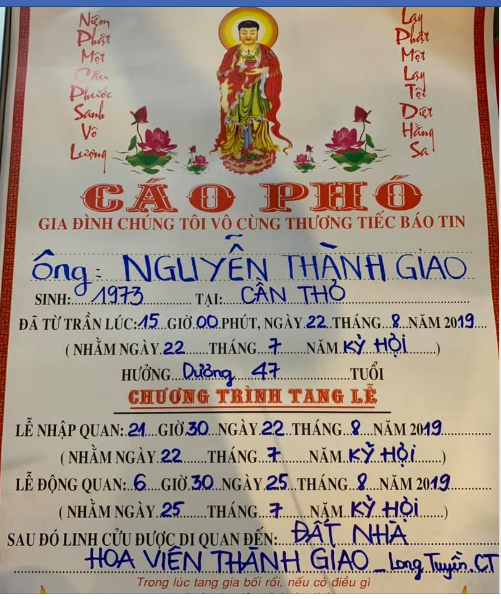 Niệm
Phật
Một
Câu
Phước
Sanh
Vô
Lượng
Lạy
Phật
Một
Lạy
Tội
Diệt
Hằng
Sa
CÁO PHÓ
GIA ĐÌNH CHÚNG TÔI VÔ CÙNG THƯƠNG TIẾC BÁO TIN
ông: NGUYỄN THÀNH GIAO
SINH: 1973 TẠI: CẦN THƠ
ĐÃ TỪ TRẦN LÚC: 15 GIỜ 00 PHÚT, NGÀY 22 THÁNG 8 NĂM 2019
( NHẰM NGÀY 22 THÁNG 7 NĂM KỶ HỘI )
HƯỞNG Dương 47 TUỔI
CHƯƠNG TRÌNH TANG LỄ
LỄ NHẬP QUAN: 21 GIỜ 30 NGÀY 22 THÁNG 8 NĂM 2019
( NHẰM NGÀY 22 THÁNG 7 NĂM KỶ HỘI )
LỄ ĐỘNG QUAN: 6 GIỜ 30 NGÀY 25 THÁNG 8 NĂM 2019
( NHẰM NGÀY 25 THÁNG 7 NĂM KỶ HỘI )
SAU ĐÓ LINH CỬU ĐƯỢC DI QUAN ĐẾN: ĐẤT NHÀ
HOA VIÊN THÀNH GIAO _ Long Tuyền. CT
Trong lúc tang gia bối rối, nếu có điều gì